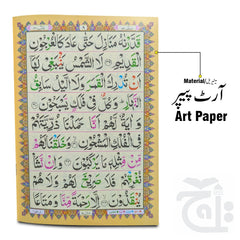 قَدَّرْنٰهُ مَنَازِلَ حَتّٰى عَادَ كَالْعُرْجُوْنِ
الْقَدِيْمِ لَا الشَّمْسُ يَنْۢبَغِيْ لَهَا
اَنْ تُدْرِكَ الْقَمَرَ وَلَا الَّيْلُ سَابِقُ
النَّهَارِ وَكُلٌّ فِيْ فَلَكٍ يَّسْبَحُوْنَ
وَاٰيَةٌ لَّهُمْ اَنَّا حَمَلْنَا ذُرِّيَّتَهُمْ
فِي الْفُلْكِ الْمَشْحُوْنِ وَخَلَقْنَا لَهُمْ
مِّنْ مِّثْلِهٖ مَا يَرْكَبُوْنَ وَاِنْ نَّشَاْ
نُغْرِقْهُمْ فَلَا صَرِيْخَ لَهُمْ وَلَا هُمْ
يُنْقَذُوْنَ اِلَّا رَحْمَةً مِّنَّا وَمَتَاعًا
Material
آرٹ پیپر
Art Paper